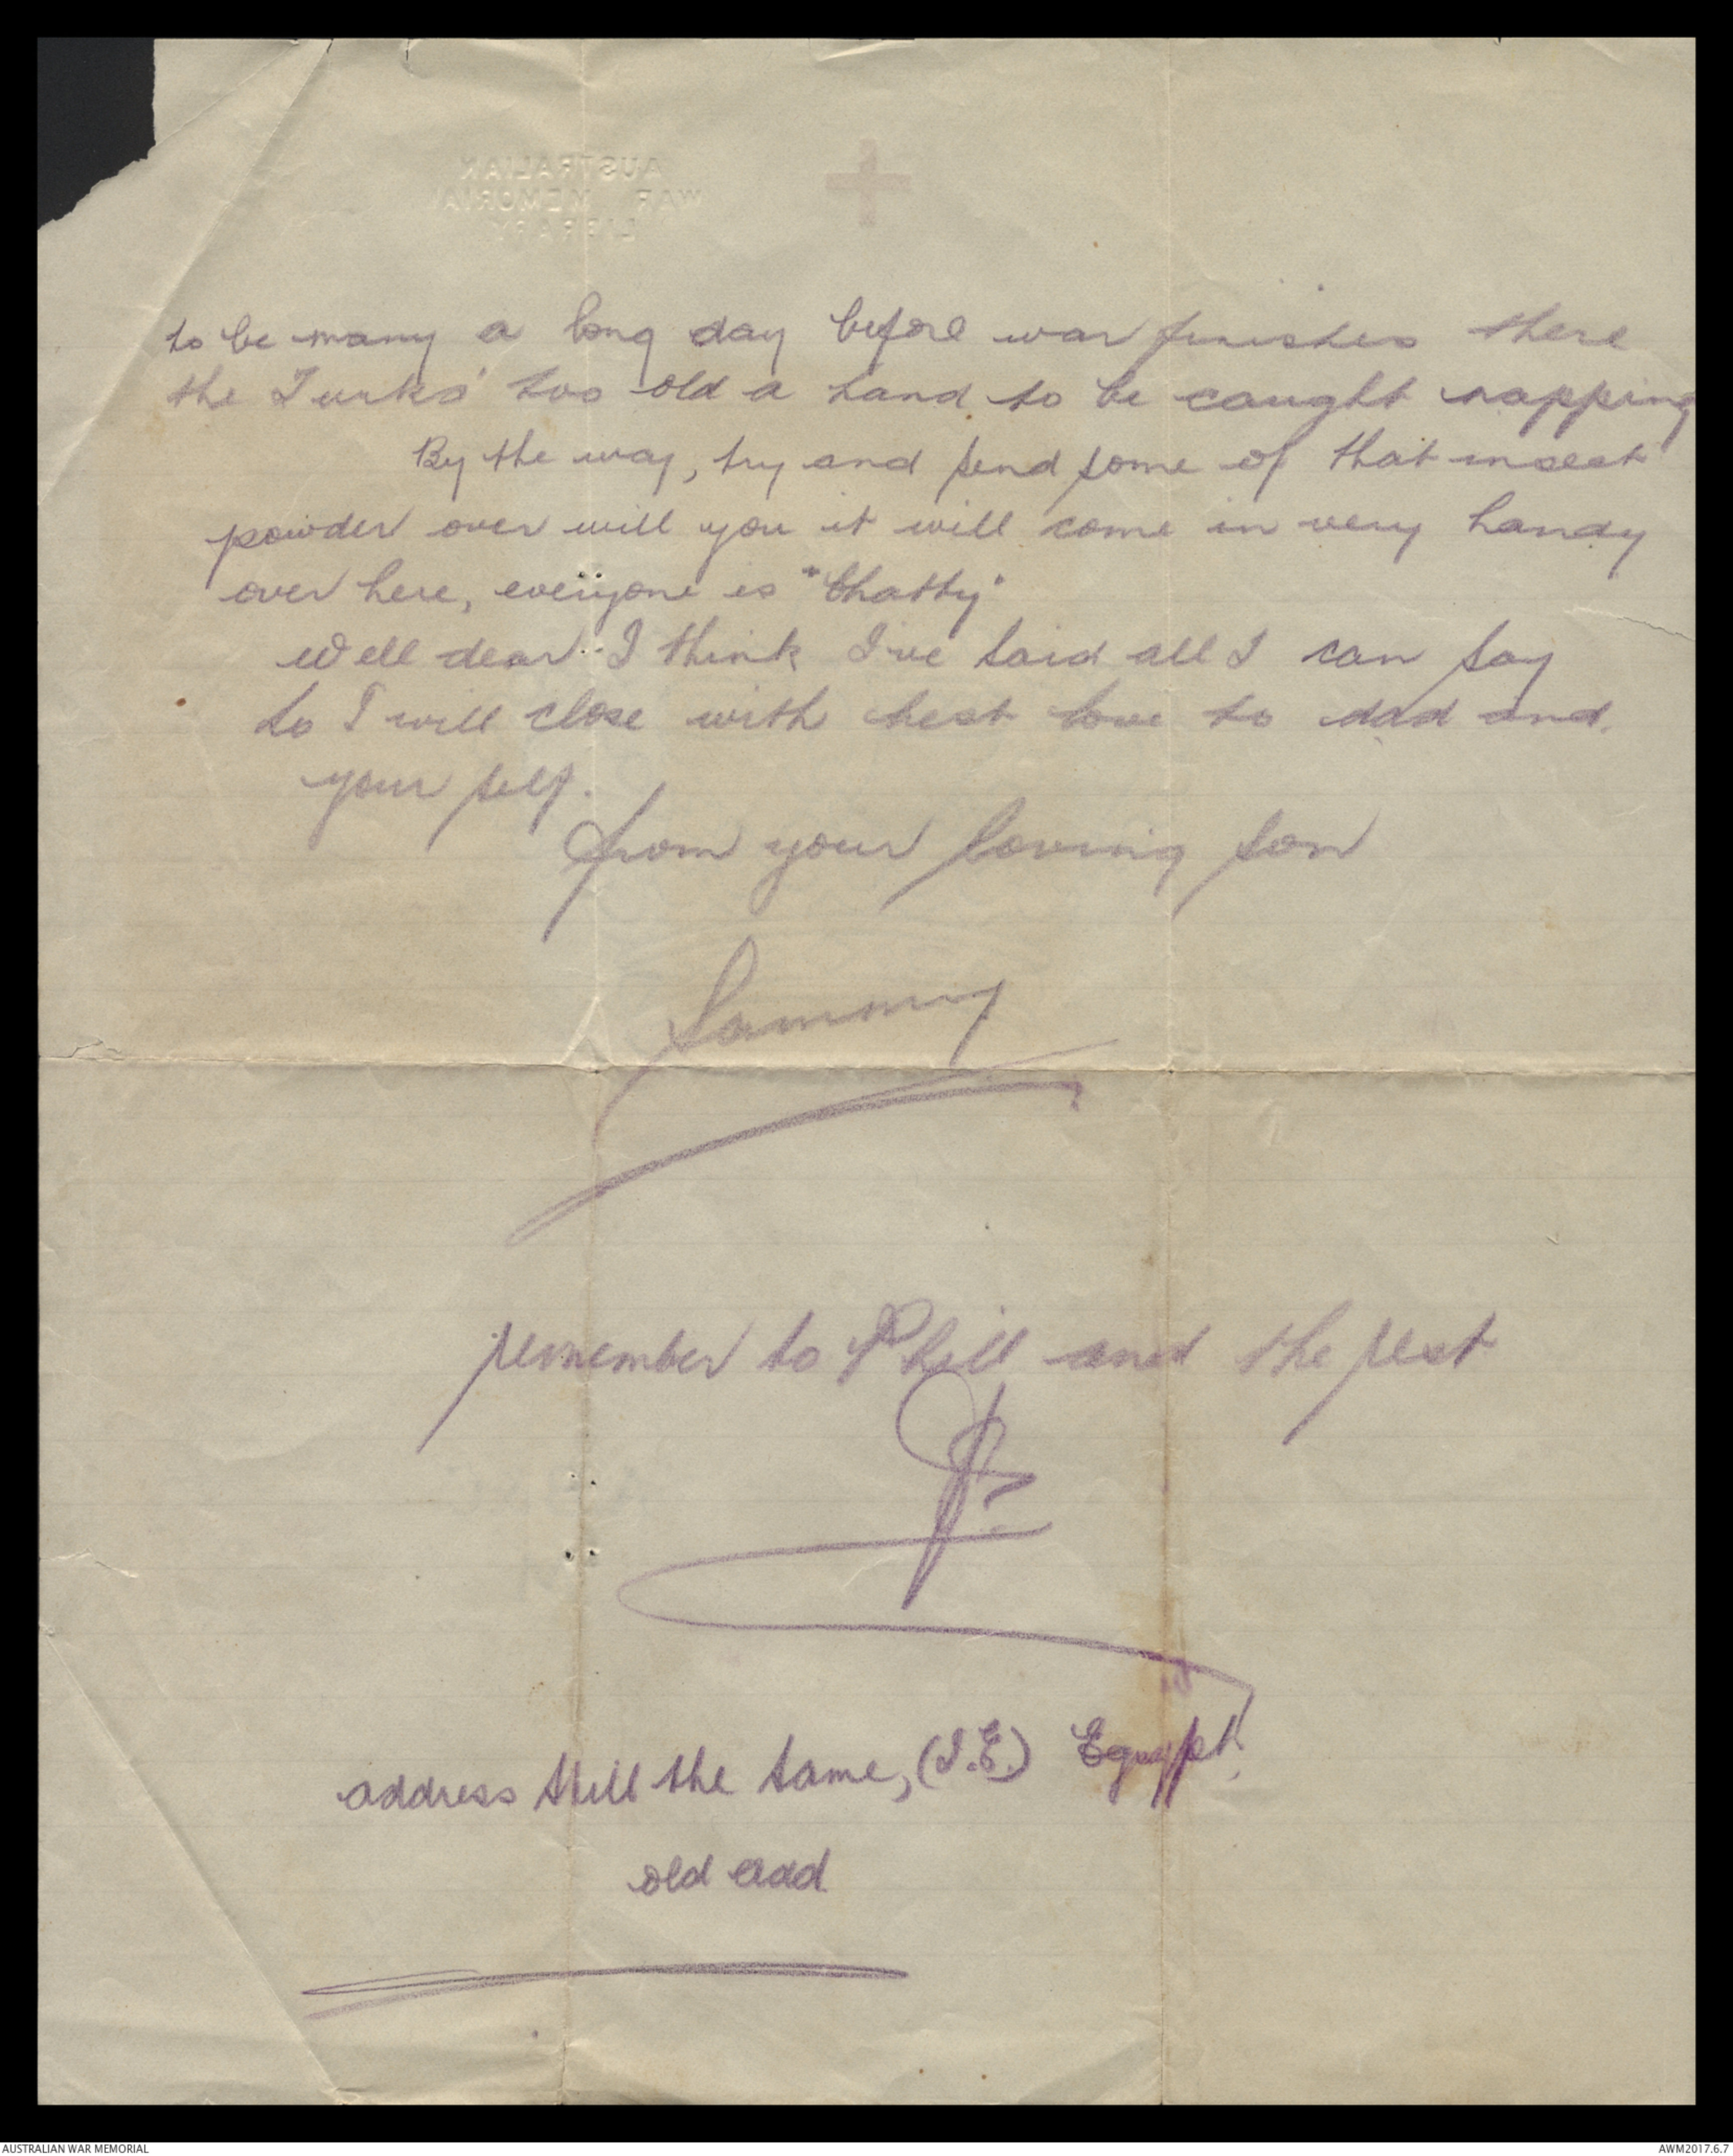 AUSTRALIAN
WAR MEMORIAL
LIBRARY
to be many a long day before war finishes there
the Turks' too old a hand to be caught napping
By the way, try and send some of that insect
powder over will you it will come in very handy
over here, everyone is "Chatty"
Well dear I think I've said all I can say
so I will close with best love to dad and
your self.
from your loving son
Sammy
remember to Phill and the rest
address still the same, (I.E.) Egypt.
old add
AUSTRALIAN WAR MEMORIAL
AWM2017.6.7